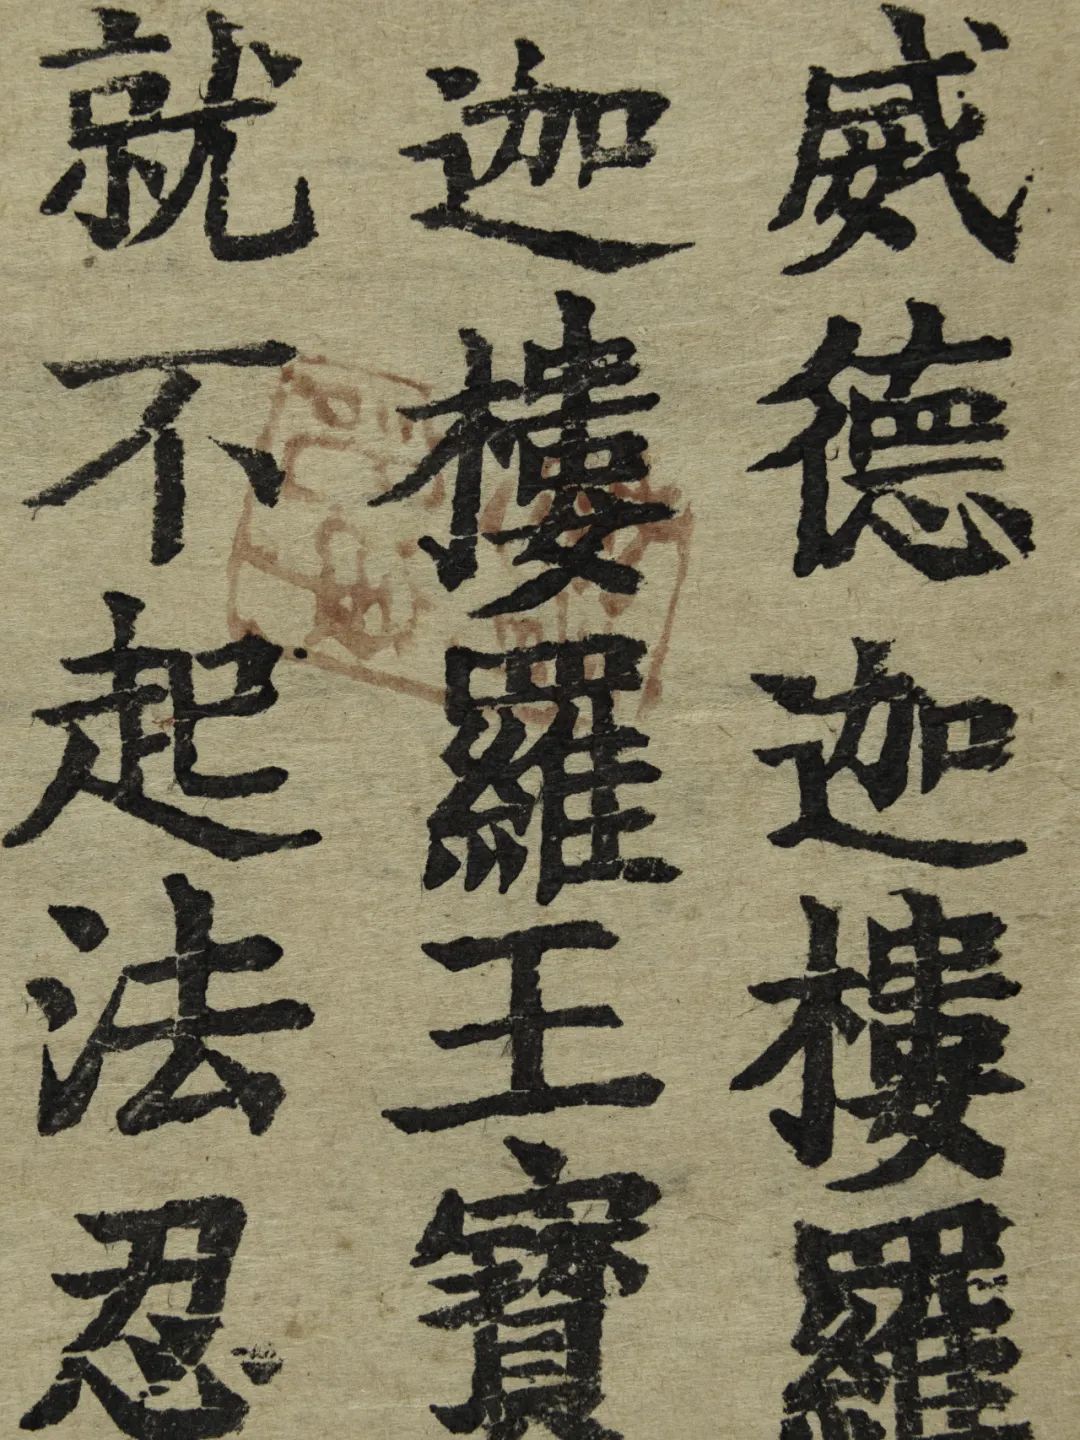 威德迦樓羅
迦樓羅王寶
就不起法忍